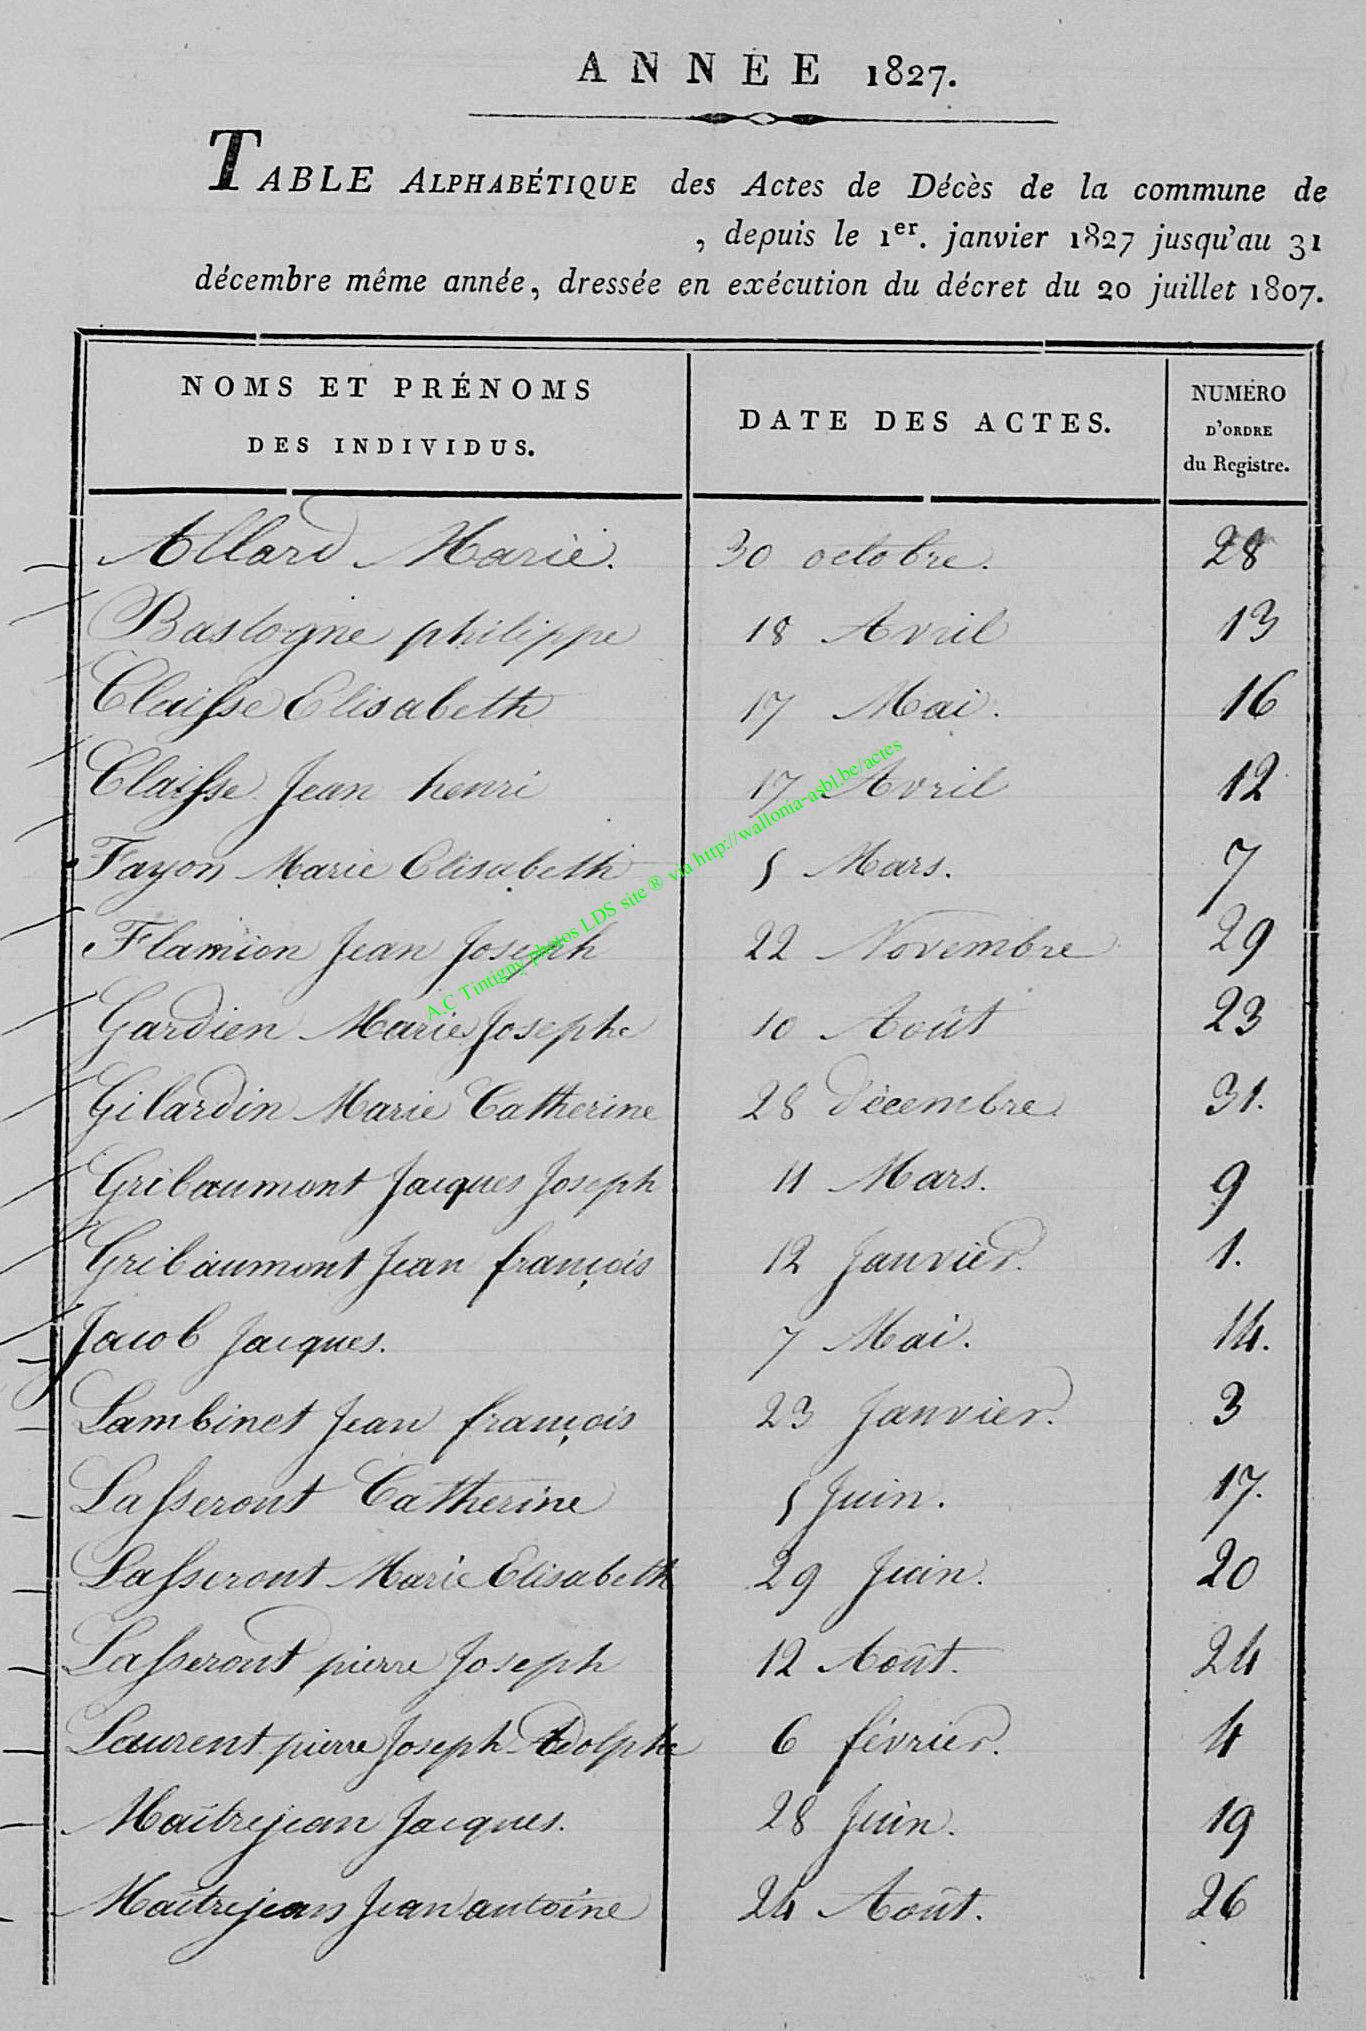 ANNÉE 1827.
TABLE ALPHABÉTIQUE des Actes de Décès de la commune de
, depuis le 1er. janvier 1827 jusqu'au 31
décembre même année, dressée en exécution du décret du 20 juillet 1807.
NOMS ET PRÉNOMS
DES INDIVIDUS.
DATE DES ACTES.
NUMÉRO
D'ORDRE
du Registre.
Allard Marie. 30 octobre. 28
Bastogne philippe 18 Avril 13
Claisse Elisabeth 17 Mai. 16
Claisse Jean henri 17 Avril 12
Fayon Marie Elisabeth 5 Mars. 7
Flamion Jean Joseph 22 Novembre 29
Gardien Marie Josephe 10 Août 23
Gilardin Marie Catherine 28 décembre 31.
Gribaumont Jacques Joseph 11 Mars. 9
Gribaumont Jean françois 12 Janvier. 1.
Jacob Jacques. 7 Mai. 14.
Lambinet Jean françois 23 Janvier. 3
Lasseront Catherine 5 Juin. 17.
Lasseront Marie Elisabeth 29 Juin. 20
Lasseront pierre Joseph 12 Août. 24
Laurent pierre Joseph Adolphe 6 février. 4
Maîtrejean Jacques. 28 Juin. 19
Maîtrejean Jean antoine 24 Août. 26
A.C Tintigny photos LDS site ® via http://wallonia-asbl.be/actes